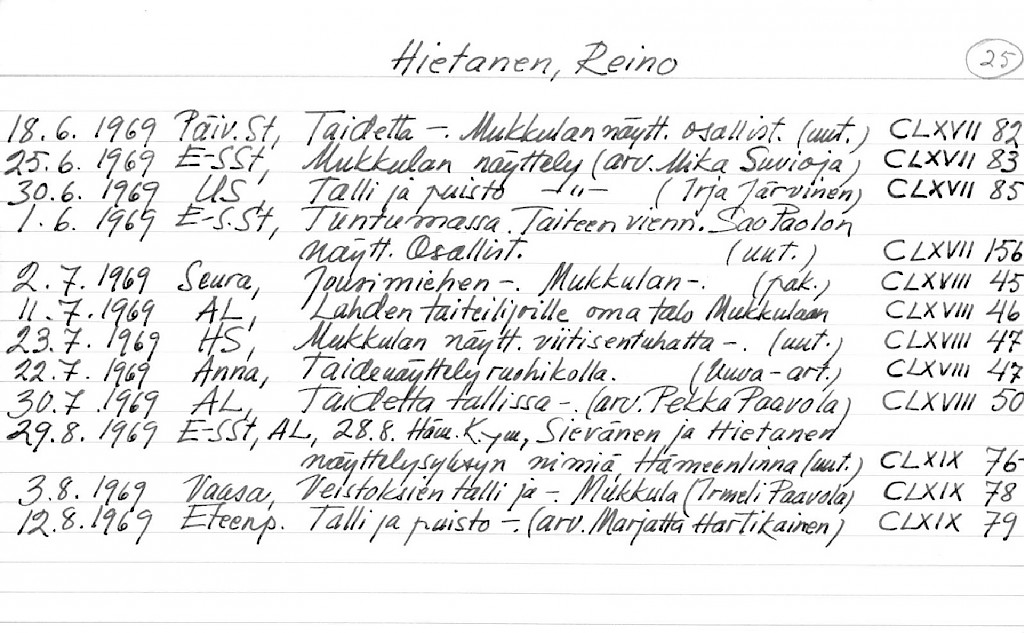 Hietanen, Reino 25
18.6. 1969 Päiv.St, Taidetta -. Mukkulan näytt. osallist. (uut.) CLXVII 82
25.6. 1969 E-SSt, Mukkulan näyttely (arv. Mika Suvioja) CLXVII 83
30.6. 1969 US, Talli ja puisto -"- (Irja Järvinen) CLXVII 85
1.6. 1969 E-S.St, Tuntumassa. Taiteen vienn. Sao Paolon
näytt. Osallist. (uut.) CLXVII 156
2.7. 1969 Seura, Jousimiehen -. Mukkulan -. (pak.) CLXVIII 45
11.7. 1969 AL, Lahden taiteilijoille oma talo Mukkulaan CLXVIII 46
23.7. 1969 HS, Mukkulan näytt. viitisentuhatta -. (uut.) CLXVIII 47
22.7. 1969 Anna, Taidenäyttely ruohikolla. (kuva-art.) CLXVIII 47
30.7. 1969 AL, Taidetta tallissa -. (arv. Pekka Paavola) CLXVIII 50
29.8. 1969 E-SSt, AL, 28.8. Häm.K.ym, Sievänen ja Hietanen
näyttelysyksyn nimiä, Hämeenlinna (uut.) CLXIX 76
3.8. 1969 Vaasa, Veistoksien talli ja -. Mukkula (Irmeli Paavola) CLXIX 78
12.8. 1969 Eteenp. Talli ja puisto -. (arv. Marjatta Hartikainen) CLXIX 79